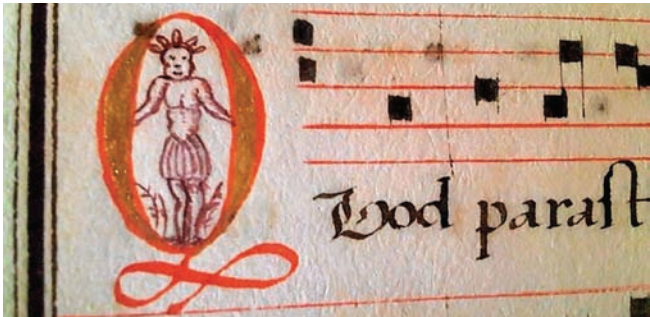 QVod paraſt